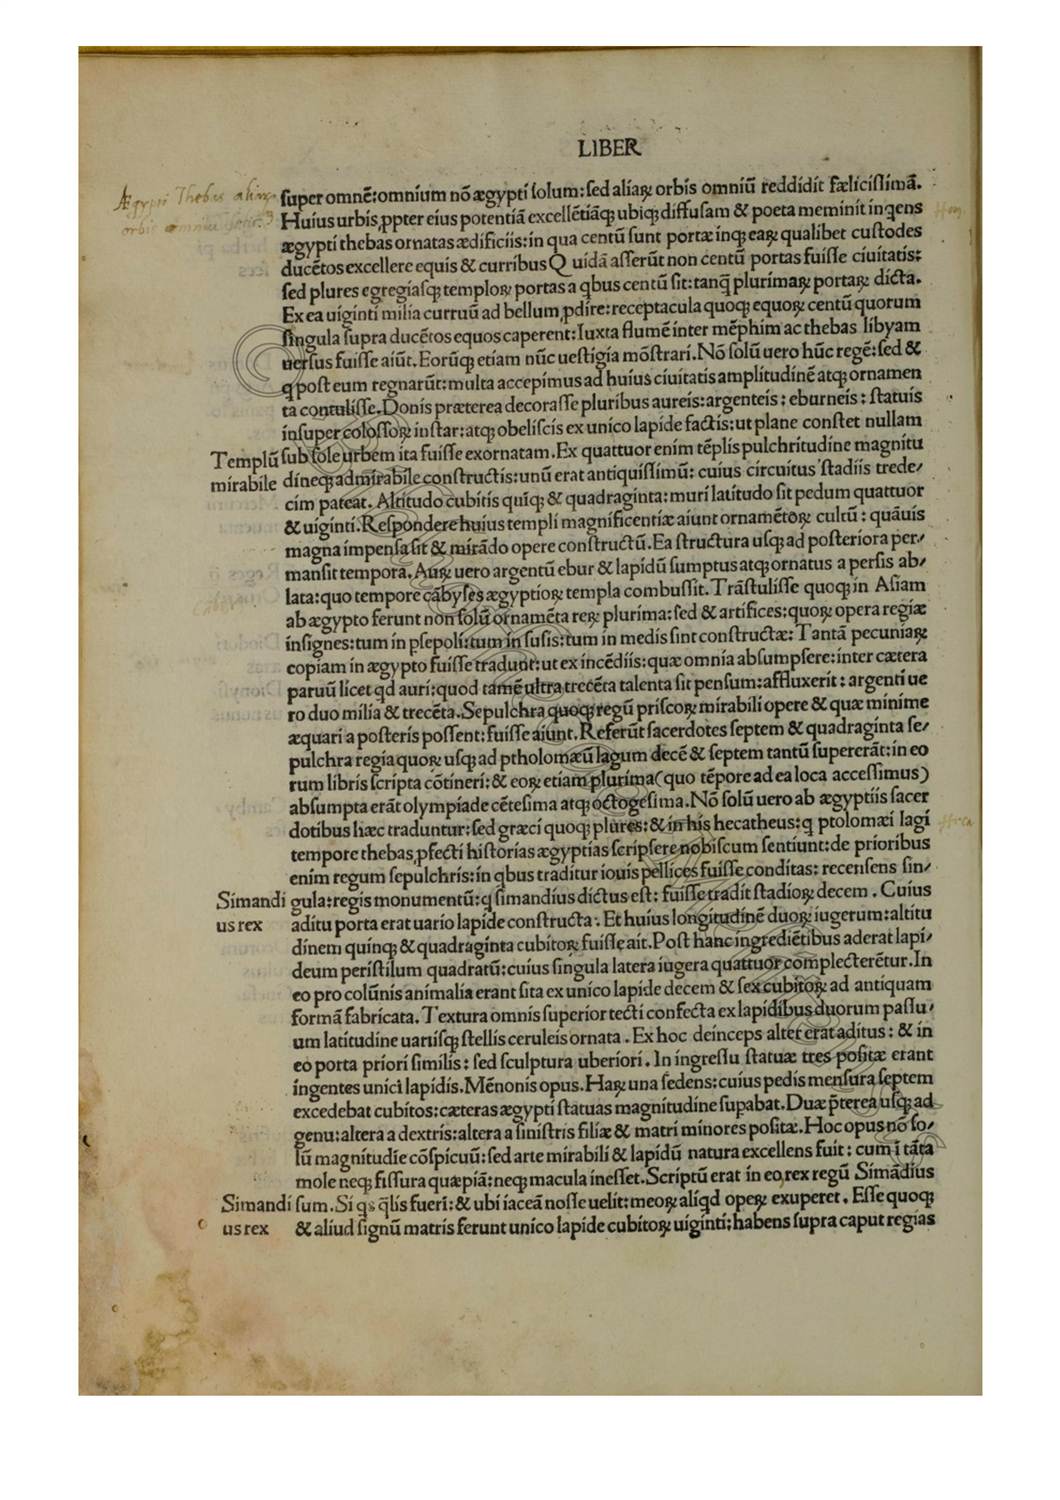 LIBER
super omnē:omnium nō ægypti solum:sed aliaꝝ orbis omniū reddidit fælicissimā.
Ægypti Thebas
Huius urbis,ꝓpter eius potentiā excellētiāqꝫ ubiqꝫ diffusam & poeta meminit inqens
orbis omniu
ægypti thebas ornatas ædificiis:in qua centū sunt portæ inqꝫ eaꝝ qualibet custodes
ducētos excellere equis & curribus Quidā asserūt non centū portas fuisse ciuitatis:
sed plures egregiasqꝫ temploꝝ portas a qbus centū sit:tanqꝫ plurimaꝝ portaꝝ dicta.
Ex ea uiginti milia curruū ad bellum ꝓdire:receptacula quoqꝫ equoꝝ centū quorum
singula supra ducētos equos caperent:Iuxta flumē inter mēphim ac thebas libyam
uersus fuisse aiūt.Eorūqꝫ etiam nūc uestigia mōstrari.Nō solū uero hūc regē:sed &
q post eum regnarūt:multa accepimus ad huius ciuitatis amplitudinē atqꝫ ornamen
ta contulisse.Donis præterea decorasse pluribus aureis:argenteis:eburneis:statuis
insuper colossoꝝ instar:atqꝫ obeliscis ex unico lapide factis:ut plane constet nullam
Templū sub sole urbem ita fuisse exornatam.Ex quattuor enim tēplis pulchritudine magnitu
mirabile dineqꝫ admirabile constructis:unū erat antiquissimū:cuius circuitus stadiis trede/
cim pateat.Altitudo cubitis quīqꝫ & quadraginta:muri latitudo sit pedum quattuor
& uiginti.Respondere huius templi magnificentiæ aiunt ornamētoꝝ cultū:quāuis
magna impensa sit & mirādo opere constructū.Ea structura usqꝫ ad posteriora per/
mansit tempora.Auꝝ uero argentū ebur & lapidū sumptus atqꝫ ornatus a persis ab/
lata:quo tempore cābyses ægyptioꝝ templa combussit.Trāstulisse quoqꝫ in Asiam
ab ægypto ferunt non solū ornamēta reꝝ plurima:sed & artifices:quoꝝ opera regiæ
insignes:tum in psepoli:tum in susis:tum in medis sint constructæ:Tantā pecuniaꝝ
copiam in ægypto fuisse tradunt:ut ex incēdiis:quæ omnia absumpsere:inter cætera
paruū licet qd auri:quod tamē ultra trecēta talenta sit pensum:affluxerit:argenti ue
ro duo milia & trecēta.Sepulchra quoqꝫ regū priscoꝝ mirabili opere & quæ minime
æquari a posteris possent:fuisse aiunt.Referūt sacerdotes septem & quadraginta se/
pulchra regia quoꝝ usqꝫ ad ptholomæū lagum decē & septem tantū supererāt:in eo
rum libris scripta cōtineri:& eoꝝ etiam plurima(quo tēpore ad ea loca accessimus)
absumpta erāt olympiade cētesima atqꝫ octogesima.Nō solū uero ab ægyptiis sacer
dotibus hæc traduntur:sed græci quoqꝫ plures:& in his hecatheus:q ptolomæi lagi
tempore thebas ꝓfecti historias ægyptias scripsere nobiscum sentiunt:de prioribus
enim regum sepulchris:in qbus traditur iouis pellices fuisse conditas:recensens sin/
Simandi gula:regis monumentū:q simandius dictus est:fuisse tradit stadioꝝ decem.Cuius
us rex aditu porta erat uario lapide constructa.Et huius longitudinē duoꝝ iugerum:altitu
dinem quinqꝫ & quadraginta cubitoꝝ fuisse ait.Post hanc ingrediētibus aderat lapi/
deum peristilum quadratū:cuius singula latera iugera quattuor complecterētur.In
eo pro colūnis animalia erant sita ex unico lapide decem & sex cubitoꝝ ad antiquam
formā fabricata.Textura omnis superior tecti confecta ex lapidibus duorum passu/
um latitudine uariisqꝫ stellis ceruleis ornata.Ex hoc deinceps alter erat aditus:& in
eo porta priori similis:sed sculptura uberiori.In ingressu statuæ tres positæ erant
ingentes unici lapidis.Mēnonis opus.Haꝝ una sedens:cuius pedis mensura septem
excedebat cubitos:cæteras ægypti statuas magnitudine supabat.Duæ p̄terea usqꝫ ad
genu:altera a dextris:altera a sinistris filiæ & matri minores positæ.Hoc opus nō so/
lū magnitudīe cōspicuū:sed arte mirabili & lapidū natura excellens fuit:cum ī tāta
mole neqꝫ fissura quæpiā:neqꝫ macula inesset.Scriptū erat in eo,rex regū Simādius
Simandi sum.Si qs q̄lis fueri:& ubi iaceā nosse uelit:meoꝝ aliqd opeꝝ exuperet.Esse quoqꝫ
us rex & aliud signū matris ferunt unico lapide cubitoꝝ uiginti:habens supra caput regias